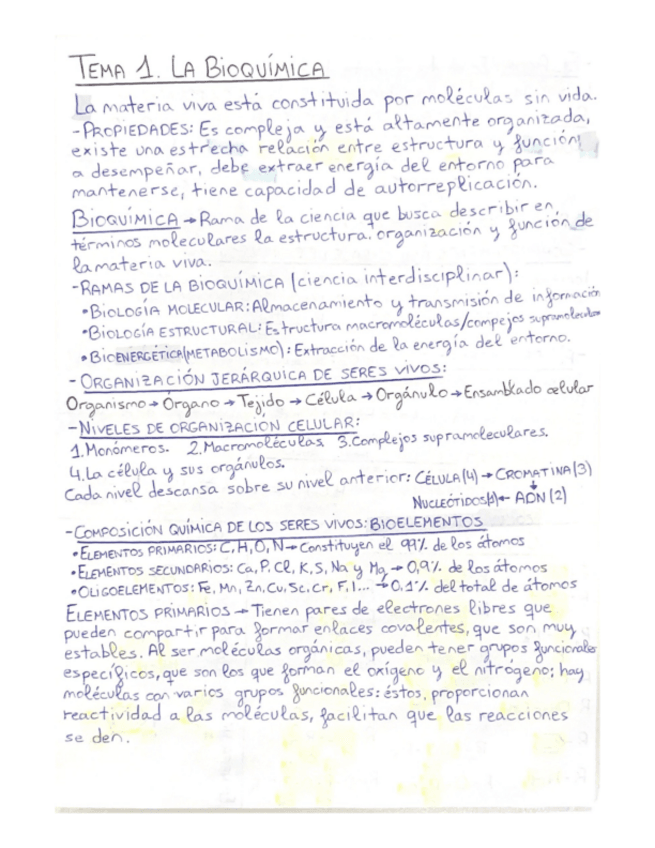 TEMA 1. LA BIOQUÍMICA
La materia viva está constituida por moléculas sin vida.
-PROPIEDADES: Es compleja y está altamente organizada,
existe una estrecha relación entre estructura y función
a desempeñar, debe extraer energía del entorno para
mantenerse, tiene capacidad de autorreplicación.
BIOQUÍMICA → Rama de la ciencia que busca describir en
términos moleculares la estructura, organización y función de
la materia viva.
-RAMAS DE LA BIOQUÍMICA (ciencia interdisciplinar):
•BIOLOGÍA MOLECULAR: Almacenamiento y transmisión de información
•BIOLOGÍA ESTRUCTURAL: Estructura macromoléculas/compejos supramoleculas
•BIOENERGÉTICA(METABOLISMO): Extracción de la energía del entorno.
- ORGANIZACIÓN JERÁRQUICA DE SERES VIVOS:
Organismo → Órgano → Tejido → Célula → Orgánulo → Ensamblado celular
-NIVELES DE ORGANIZACIÓN CELULAR:
1.Monómeros. 2.Macromoléculas 3.Complejos supramoleculares.
4.La célula y sus orgánulos.
Cada nivel descansa sobre su nivel anterior: CÉLULA(4) → CROMATINA(3)
↓
NUCLEÓTIDOS(1) ← ADN (2)
-COMPOSICIÓN QUÍMICA DE LOS SERES VIVOS: BIOELEMENTOS
•ELEMENTOS PRIMARIOS: C, H, O, N → Constituyen el 99% de los átomos
•ELEMENTOS SECUNDARIOS: Ca, P, Cl, K, S, Na y Mg → 0,9% de los átomos
•OLIGOELEMENTOS: Fe, Mn, Zn, Cu, Sc, Cr, F, I... → 0,1% del total de átomos
ELEMENTOS PRIMARIOS → Tienen pares de electrones libres que
pueden compartir para formar enlaces covalentes, que son muy
estables. Al ser moléculas orgánicas, pueden tener grupos funcionales
específicos, que son los que forman el oxígeno y el nitrógeno; hay
moléculas con varios grupos funcionales: éstos, proporcionan
reactividad a las moléculas, facilitan que las reacciones
se den.